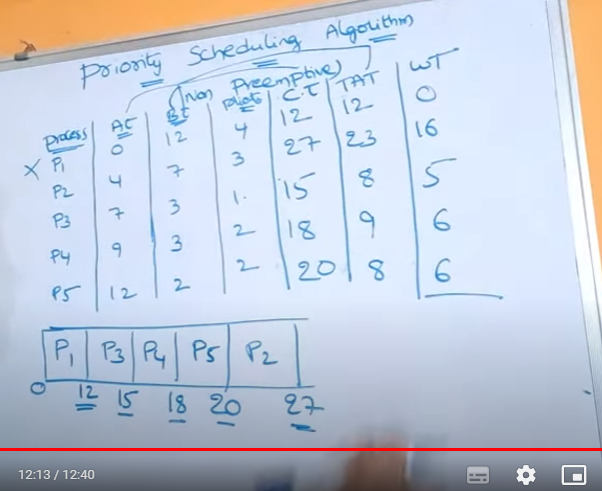 Priority Scheduling Algorithm
(Non Preemptive)
Process AT BT C.T TAT WT
X P1 0 12 4 12 12 0
P2 4 7 3 27 23 16
P3 7 3 1. 15 8 5
P4 9 3 2 18 9 6
P5 12 2 2 20 8 6
P1 P3 P4 P5 P2
0 12 15 18 20 27
12:13 / 12:40